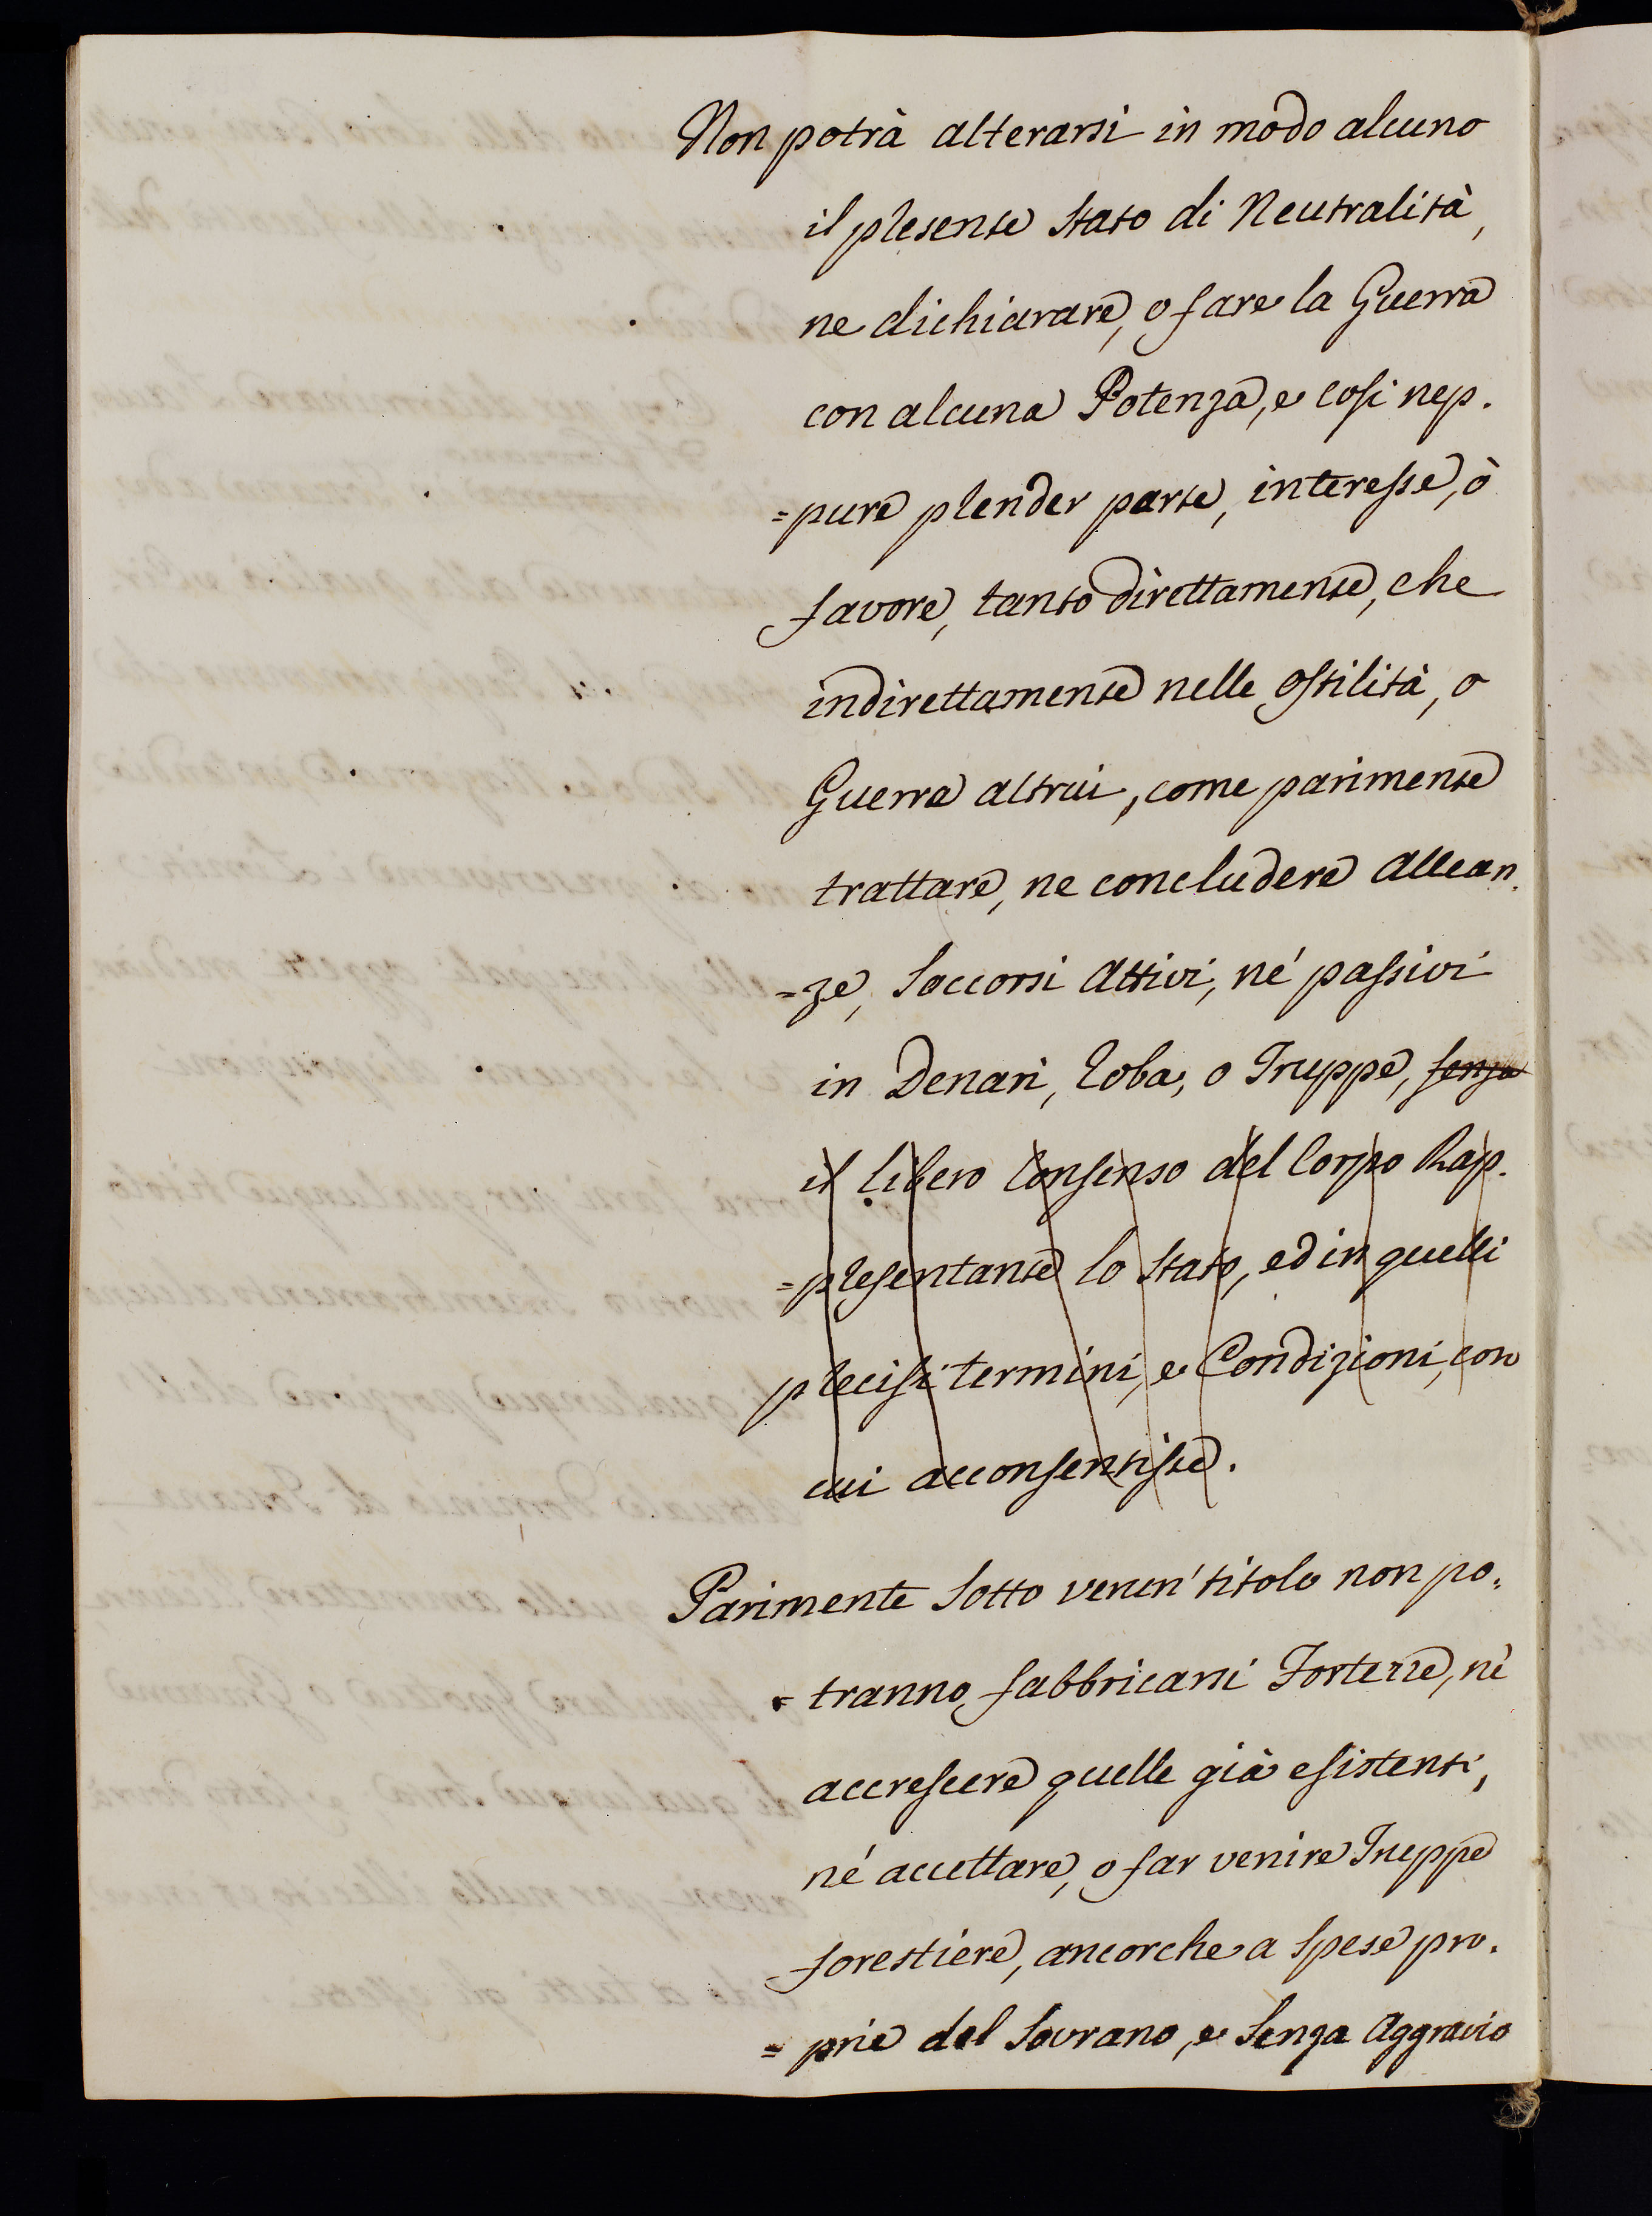 Non potrà alterarsi in modo alcuno
il presente Stato di Neutralità,
ne dichiarare, o fare la Guerra
con alcuna Potenza, e così nep.
=pure prender parte, interesse, ò
favore, tanto direttamente, che
indirettamente nelle ostilità, o
Guerra altrui, come parimente
trattare, ne concludere Allean.
=ze, Soccorsi Attivi, né passivi
in Denari, Roba, o Truppe, senza
il libero Consenso del Corpo Rap.
=presentante lo Stato, ed in quelli
precisi termini, e Condizioni, con
cui acconsentisse.
Parimente Sotto verun' titolo non po.
=tranno fabbricarsi Fortezze, nè
accrescere quelle già esistenti,
né accettare, o far venire Truppe
forestiere, ancorche a Spese pro.
=prie del Sovrano, e Senza Aggravio